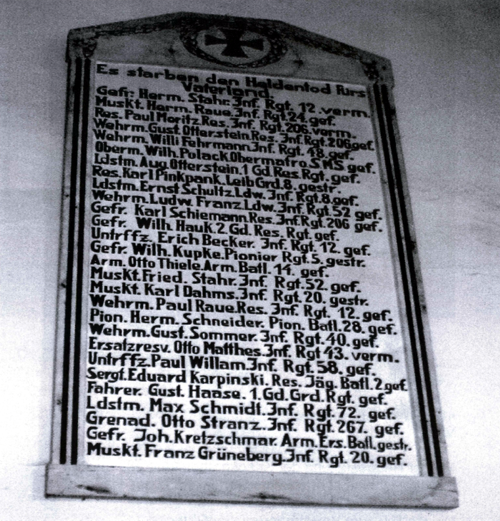 Es starben den Heldentod fürs
Vaterland.
Gefr. Herm. Stahr. Inf. Rgt. 12. verm.
Muskt. Herm. Raue. Inf. Rgt. 24. gef.
Res. Paul Moritz. Res. Inf. Rgt. 206. verm.
Wehrm. Gust. Otterstein. Res. Inf. Rgt. 206 gef.
Wehrm. Willi Fehrmann. Inf. Rgt. 48. gef.
Oberm. Wilh. Polack Obermatro S.M.S. gef.
Ldstm. Aug. Otterstein. 1 Gd. Res. Rgt. gef.
Res. Karl Pinkpank. Leib Grd. 8. gestr.
Ldstm. Ernst Schultz. Ldw. Inf. Rgt. 8. gef.
Wehrm. Ludw. Franz. Ldw. Inf. Rgt. 52 gef.
Gefr. Karl Schiemann. Res. Inf. Rgt. 206 gef.
Gefr. Wilh. Hauk. 2 Gd. Res. Rgt. gef.
Untrffz. Erich Becker. Inf. Rgt. 12. gef.
Gefr. Wilh. Kupke. Pionier Rgt. 5. gestr.
Arm. Otto Thiele. Arm. Batl. 14. gef.
Muskt. Fried. Stahr. Inf. Rgt. 52. gef.
Muskt. Karl Dahms. Inf. Rgt. 20. gestr.
Wehrm. Paul Raue. Res. Inf. Rgt. 12. gef.
Pion. Herm. Schneider. Pion. Batl. 28. gef.
Wehrm. Gust. Sommer. Inf. Rgt. 40. gef.
Ersatzresv. Otto Matthes. Inf. Rgt 43. verm.
Untrffz. Paul Willam. Inf. Rgt. 58. gef.
Sergt. Eduard Karpinski. Res. Jäg. Batl. 2. gef.
Fahrer. Gust. Haase. 1. Gd. Grd. Rgt. gef.
Ldstm. Max Schmidt. Inf. Rgt. 72. gef.
Grenad. Otto Stranz. Inf. Rgt. 267. gef.
Gefr. Joh. Kretzschmar. Arm. Ers. Batl. gestr.
Muskt. Franz Grüneberg. Inf. Rgt. 20. gef.